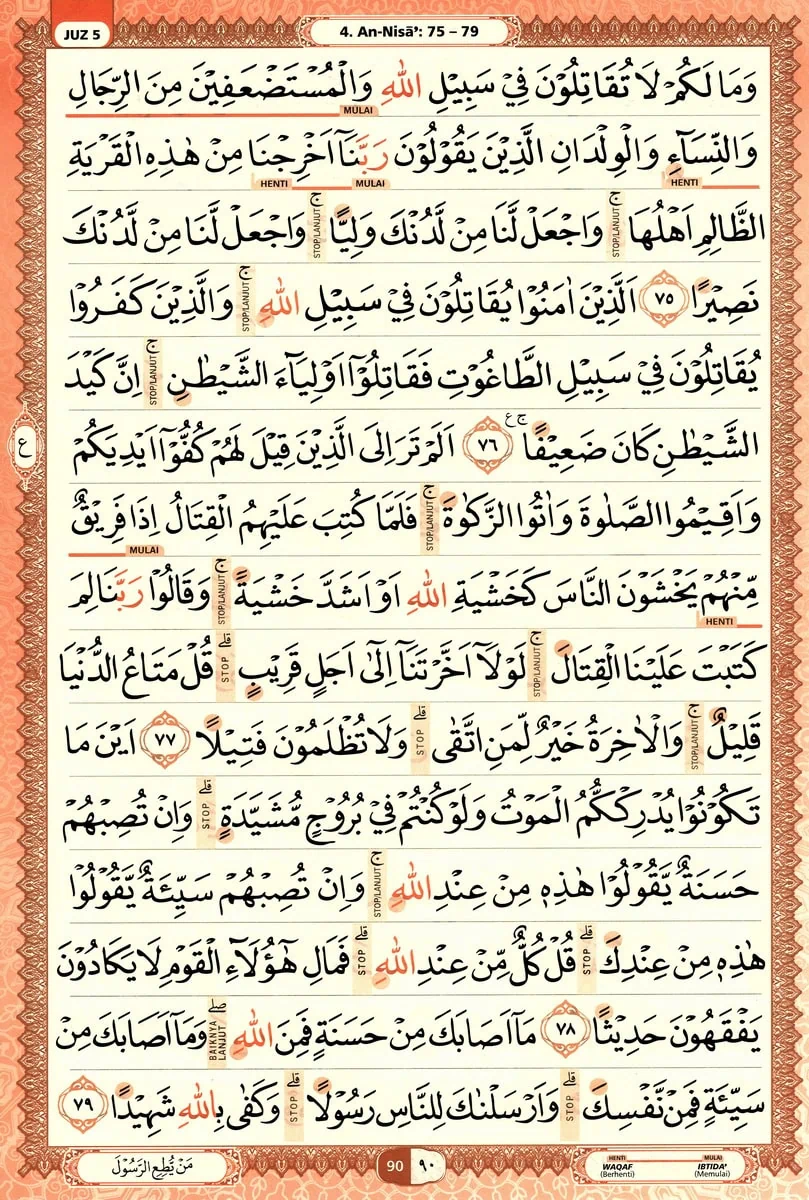 JUZ 5
4. An-Nisā': 75 – 79
وَمَا لَكُمْ لَا تُقَاتِلُوْنَ فِيْ سَبِيْلِ اللّٰهِ وَالْمُسْتَضْعَفِيْنَ مِنَ الرِّجَالِ
MULAI
وَالنِّسَاۤءِ وَالْوِلْدَانِ الَّذِيْنَ يَقُوْلُوْنَ رَبَّنَآ اَخْرِجْنَا مِنْ هٰذِهِ الْقَرْيَةِ
HENTI MULAI HENTI
الظَّالِمِ اَهْلُهَاۚ STOP/LANJUT وَاجْعَلْ لَّنَا مِنْ لَّدُنْكَ وَلِيًّاۚ STOP/LANJUT وَاجْعَلْ لَّنَا مِنْ لَّدُنْكَ
نَصِيْرًا ٧٥ اَلَّذِيْنَ اٰمَنُوْا يُقَاتِلُوْنَ فِيْ سَبِيْلِ اللّٰهِۚ STOP/LANJUT وَالَّذِيْنَ كَفَرُوْا
يُقَاتِلُوْنَ فِيْ سَبِيْلِ الطَّاغُوْتِ فَقَاتِلُوْٓا اَوْلِيَاۤءَ الشَّيْطٰنِۚ STOP/LANJUT اِنَّ كَيْدَ
ع
الشَّيْطٰنِ كَانَ ضَعِيْفًا ۚ ࣖ ٧٦ اَلَمْ تَرَ اِلَى الَّذِيْنَ قِيْلَ لَهُمْ كُفُّوْٓا اَيْدِيَكُمْ
وَاَقِيْمُوا الصَّلٰوةَ وَاٰتُوا الزَّكٰوةَۚ STOP/LANJUT فَلَمَّا كُتِبَ عَلَيْهِمُ الْقِتَالُ اِذَا فَرِيْقٌ
MULAI
مِّنْهُمْ يَخْشَوْنَ النَّاسَ كَخَشْيَةِ اللّٰهِ اَوْ اَشَدَّ خَشْيَةًۚ STOP/LANJUT وَقَالُوْا رَبَّنَا لِمَ
HENTI
كَتَبْتَ عَلَيْنَا الْقِتَالَۚ STOP/LANJUT لَوْلَآ اَخَّرْتَنَآ اِلٰٓى اَجَلٍ قَرِيْبٍۗ STOP قُلْ مَتَاعُ الدُّنْيَا
قَلِيْلٌۚ STOP/LANJUT وَالْاٰخِرَةُ خَيْرٌ لِّمَنِ اتَّقٰىۗ STOP وَلَا تُظْلَمُوْنَ فَتِيْلًا ٧٧ اَيْنَ مَا
تَكُوْنُوْا يُدْرِكْكُّمُ الْمَوْتُ وَلَوْ كُنْتُمْ فِيْ بُرُوْجٍ مُّشَيَّدَةٍۗ STOP وَاِنْ تُصِبْهُمْ
حَسَنَةٌ يَّقُوْلُوْا هٰذِهٖ مِنْ عِنْدِ اللّٰهِۚ STOP/LANJUT وَاِنْ تُصِبْهُمْ سَيِّئَةٌ يَّقُوْلُوْا
هٰذِهٖ مِنْ عِنْدِكَۗ STOP قُلْ كُلٌّ مِّنْ عِنْدِ اللّٰهِۗ STOP فَمَالِ هٰٓؤُلَاۤءِ الْقَوْمِ لَا يَكَادُوْنَ
يَفْقَهُوْنَ حَدِيْثًا ٧٨ مَآ اَصَابَكَ مِنْ حَسَنَةٍ فَمِنَ اللّٰهِۖ BAIKNYA LANJUT وَمَآ اَصَابَكَ مِنْ
سَيِّئَةٍ فَمِنْ نَّفْسِكَۗ STOP وَاَرْسَلْنٰكَ لِلنَّاسِ رَسُوْلًاۗ STOP وَكَفٰى بِاللّٰهِ شَهِيْدًا ٧٩
مَنْ يُّطِعِ الرَّسُوْلَ
90 ٩٠
HENTI MULAI
WAQAF IBTIDA'
(Berhenti) (Memulai)